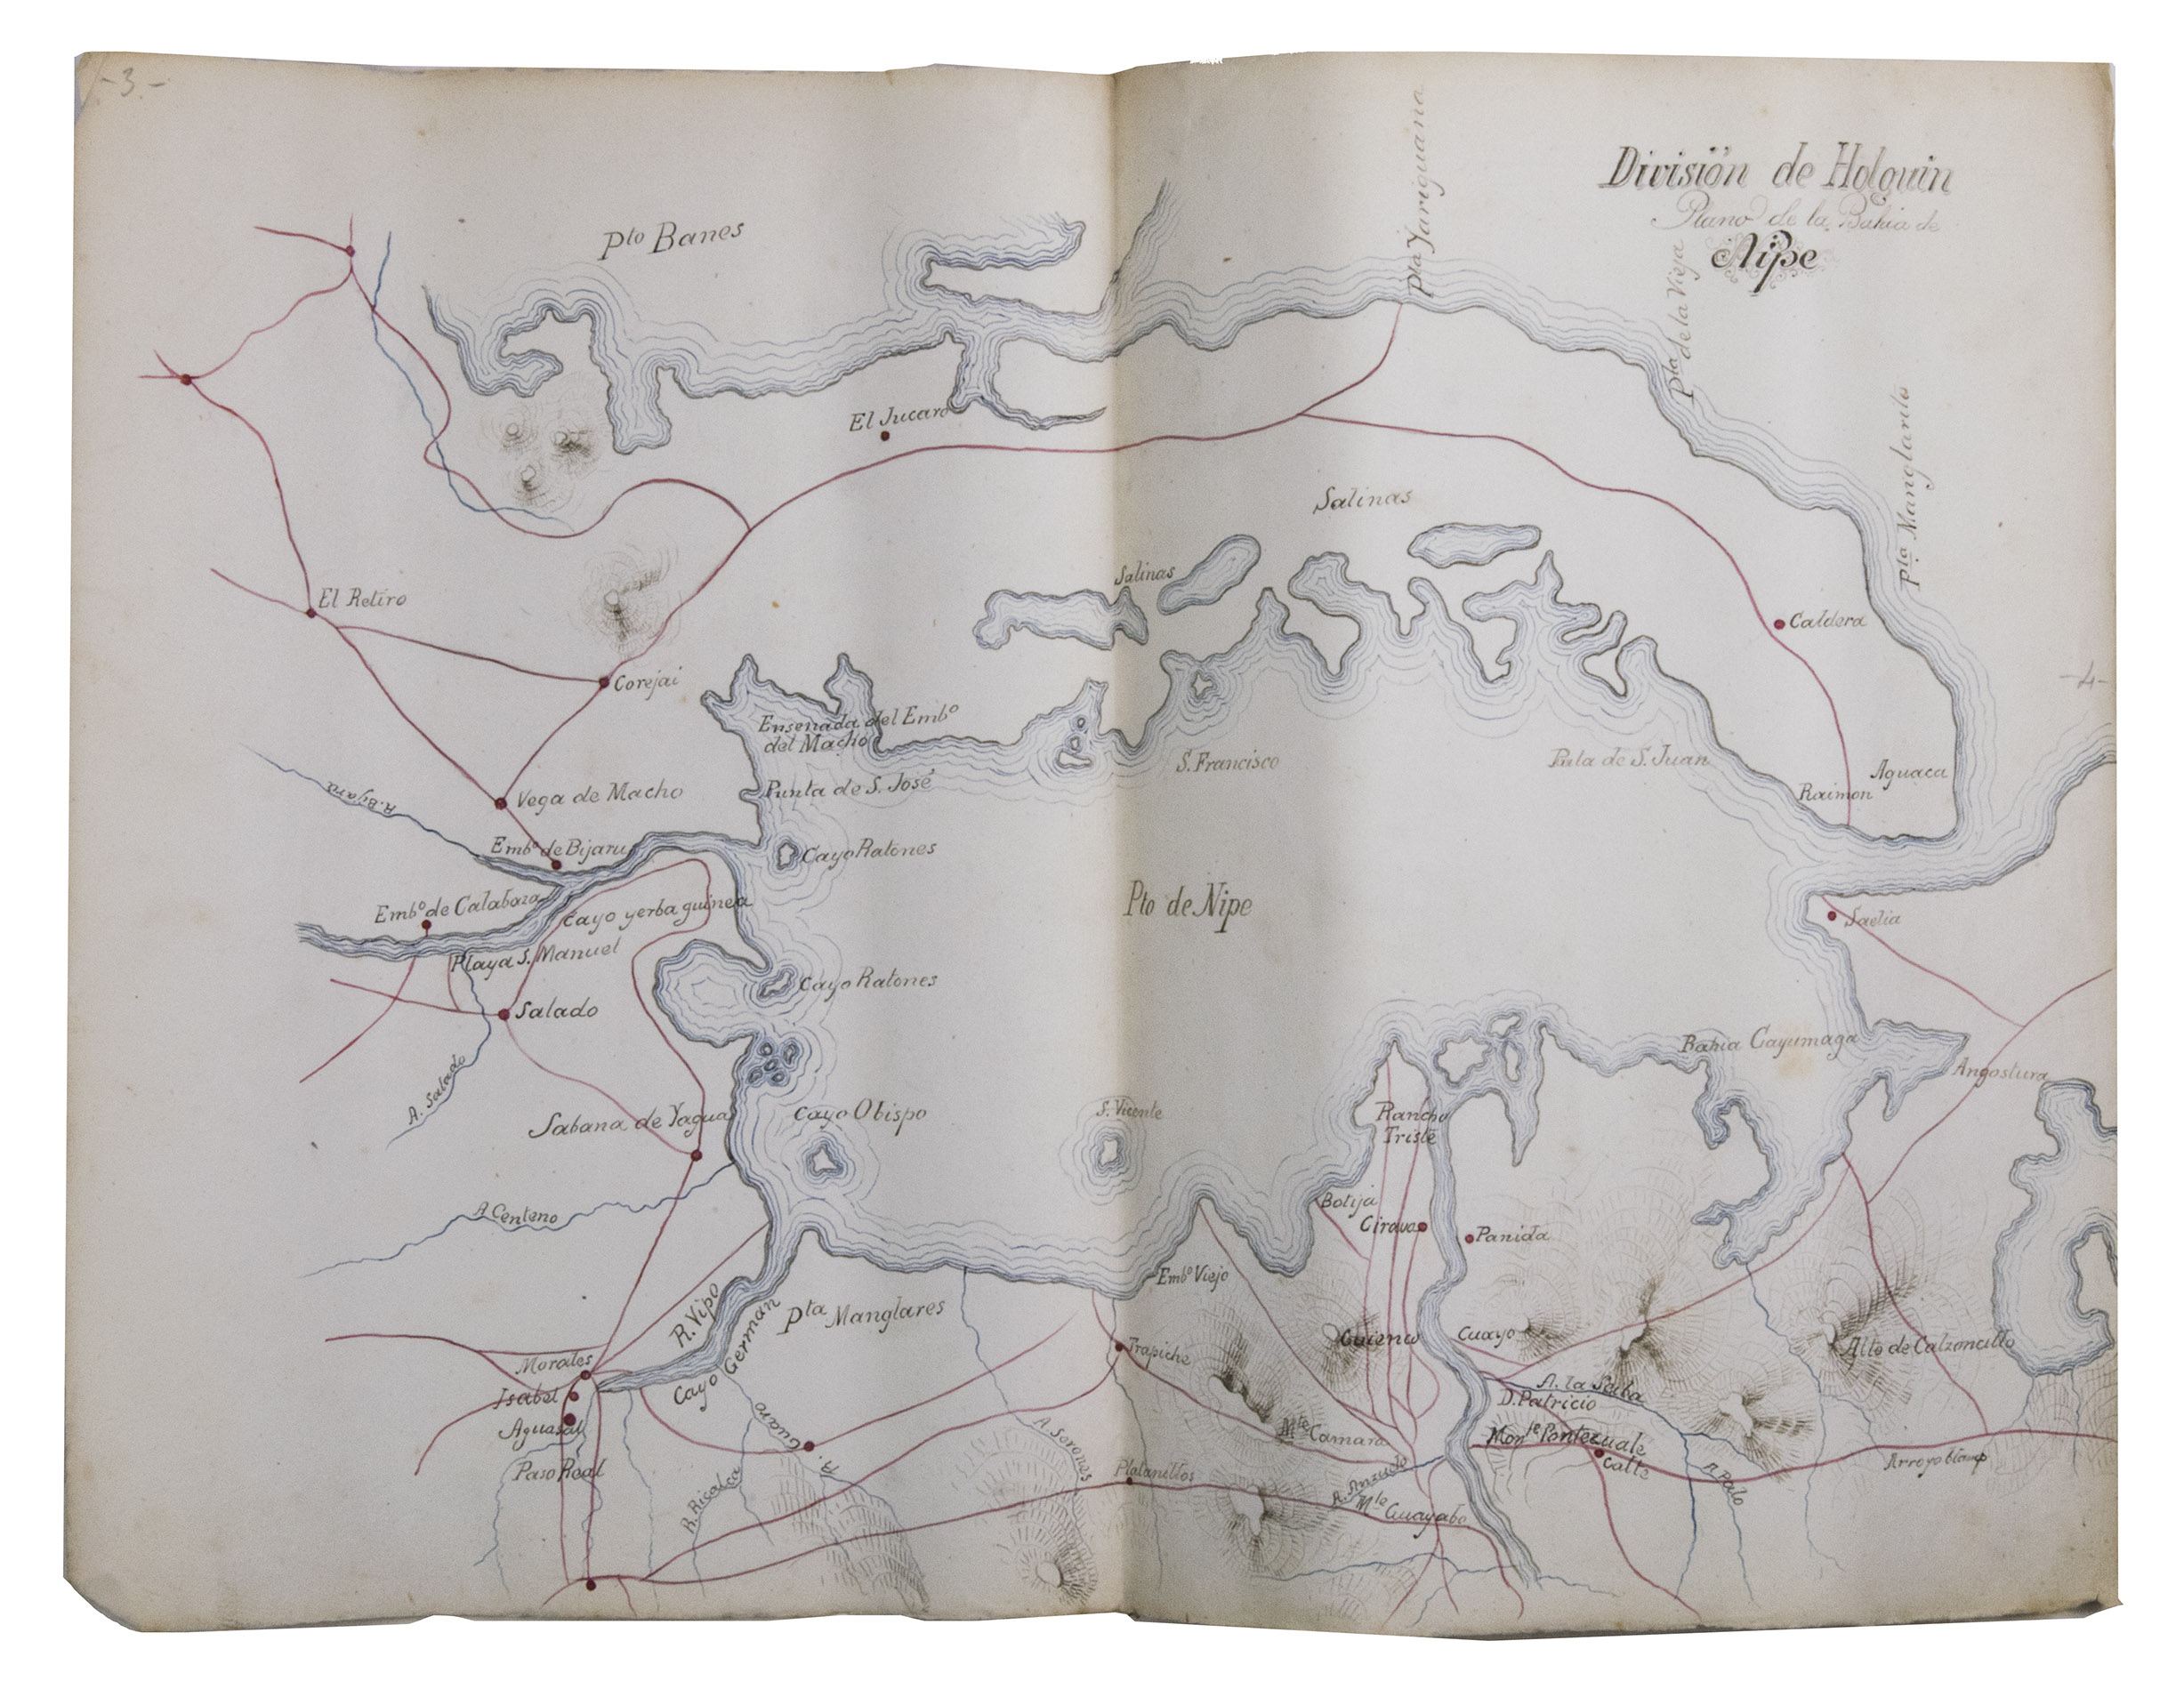 -3.-
División de Holguin
Plano de la Bahia de
Nipe
Pto Banes
Pta Yariguana
Pta de la Vieja
Pta Manglarito
El Jucaro
Salinas
Salinas
El Retiro
Caldera
Corejai
-4-
Ensenada del Embo
del Macho
S. Francisco
Punta de S. Juan
Aguaca
Raimon
Punta de S. José
Vega de Macho
R. Bijaru
Embo de Bijaru
Cayo Ratones
Embo de Calabaza
Cayo yerba guinea
Pto de Nipe
Saetia
Playa S. Manuel
Cayo Ratones
Salado
Bahia Cayumaga
Angostura
A. Salado
Sabana de Yagua
Cayo Obispo
S. Vicente
Rancho
Triste
A. Centeno
Botija
Panida
Embo Viejo
R. Vipo
Cayo German
Pta Manglares
Morales
Isabel
Aguasal
Paso Real
Trapiche
Cuayo
Alto de Calzoncillo
A. la Seiba
D. Patricio
A. Guaro
A. Sorones
Mte Camara
Calte
Platanillos
A. Anzuelo
Mte Guayabo
A. Palo